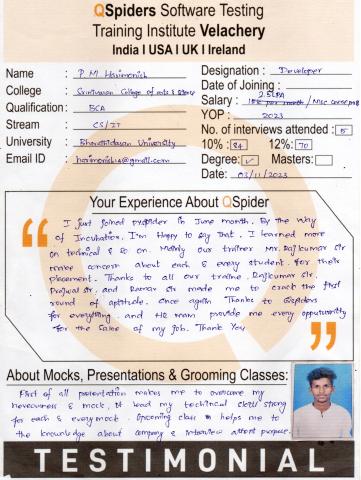 QSpiders Software Testing
Training Institute Velachery
India I USA I UK I Ireland
Name : P M Harimonish
College : Srinivasan College of arts & science
Qualification : BCA
Stream : CS/IT
University : Bharathidasan University
Email ID :
Designation : Developer
Date of Joining :
Salary : 2.5LPA
YOP : 2023
No. of interviews attended : 5
10% : 84 12% : 70
Degree: ✓ Masters:
Date: 03/11/2023
Your Experience About QSpider
I just joined qspider in June month. By the way
of Incubation. I'm Happy to say that. I learned more
on technical & so on. Mainly our trainer Mr. Rajkumar sir
make concern about each & every student. For their
placement. Thanks to all our traine. Rajkumar sir.
Prajwal sir. and Raman sir made me to crack the first
round of aptitude. Once again Thanks to Qspiders
for everything and HR mam provide me every oppurtunity
for the sake of my job. Thank you
About Mocks, Presentations & Grooming Classes:
First of all presentation makes me to overcome my
nerveousness & mock, It lead my technical class strong
for each & every mock. Upcoming class helps me to
the knowledge about company & interview attent purpose.
TESTIMONIAL